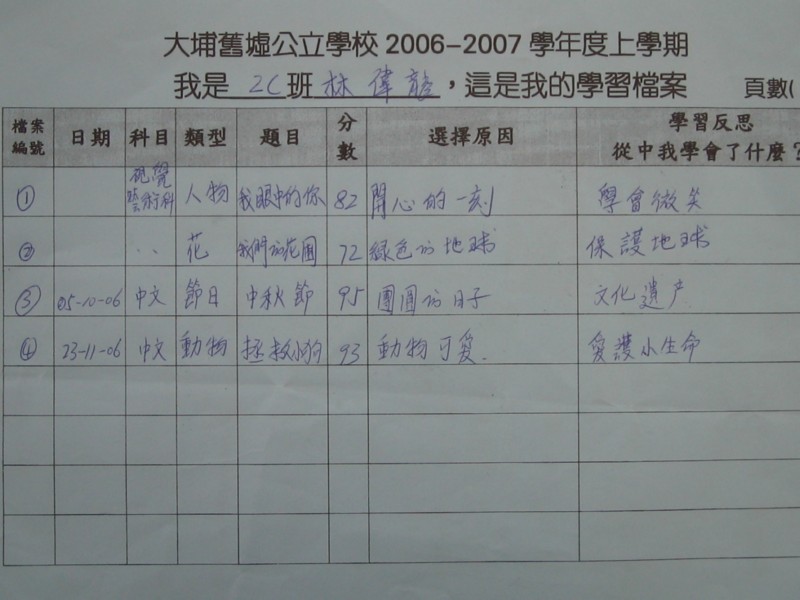 大埔舊墟公立學校 2006-2007 學年度上學期
我是 2C 班 林偉龍,這是我的學習檔案 頁數(
檔案編號 日期 科目 類型 題目 分數 選擇原因 學習反思 從中我學會了什麼?
① 視覺藝術科 人物 我眼中的你 82 開心的一刻 學會微笑
② 〃 花 我們的花園 72 綠色的地球 保護地球
③ 05-10-06 中文 節日 中秋節 95 團圓的日子 文化遺产
④ 23-11-06 中文 動物 拯救小狗 93 動物可愛. 愛護小生命